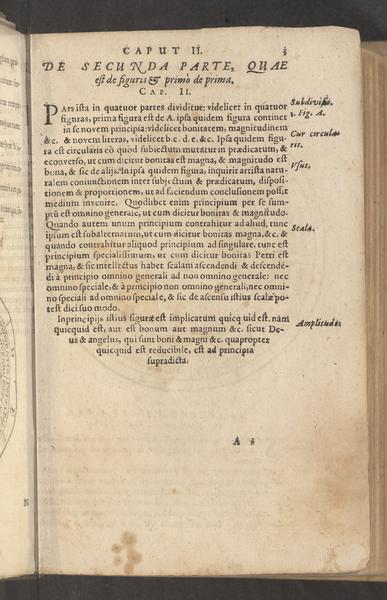 CAPUT II. 3
DE SECUNDA PARTE, QUAE
est de figuris & primò de prima.
CAP. II.
PArs ista in quatuor partes dividitur: videlicet in quatuor
figuras, prima figura est de A. ipsa quidem figura continet
in se novem principia: videlicet bonitatem, magnitudinem
&c. & novem literas, videlicet b. c. d. e. &c. Ipsa quidem figu-
ra est circularis eò quòd subiectum mutatur in prædicatum, &
econverso, ut cum dicitur bonitas est magna, & magnitudo est
bona, & sic de aliis. In ipsa quidem figura, inquirit artista natu-
ralem coniunctionem inter subjectum & prædicatum, disposi-
tionem & proportionem, ut ad faciendum conclusionem possit
medium invenire. Quodlibet enim principium per se sum-
ptū est omnino generale, ut cum dicitur bonitas & magnitudo.
Quando autem unum principium contrahitur ad aliud, tunc
ipsum est subalternatum, ut cum dicitur bonitas magna, &c. &
quando contrahitur aliquod principium ad singulare, tunc est
principium specialissimum, ut cum dicitur bonitas Petri est
magna, & sic intellectus habet scalam ascendendi & descendē-
di à principio omnino generali ad non omnino generale: nec
omnino speciale, & à principio non omnino generali, nec omni-
no speciali ad omnino speciale, & sic de ascensu istius scalæ po-
test dici suo modo.
In principijs istius figuræ est implicatum quicquid est. nam
quicquid est, aut est bonum aut magnum &c. sicut De-
us & angelus, qui sunt boni & magni &c. quapropter
quicquid est reducibile, est ad principia
supradicta.
Subdivisio.
1. Fig. A.
Cur circula-
ris.
Usus.
Scala.
Amplitudo.
A 3